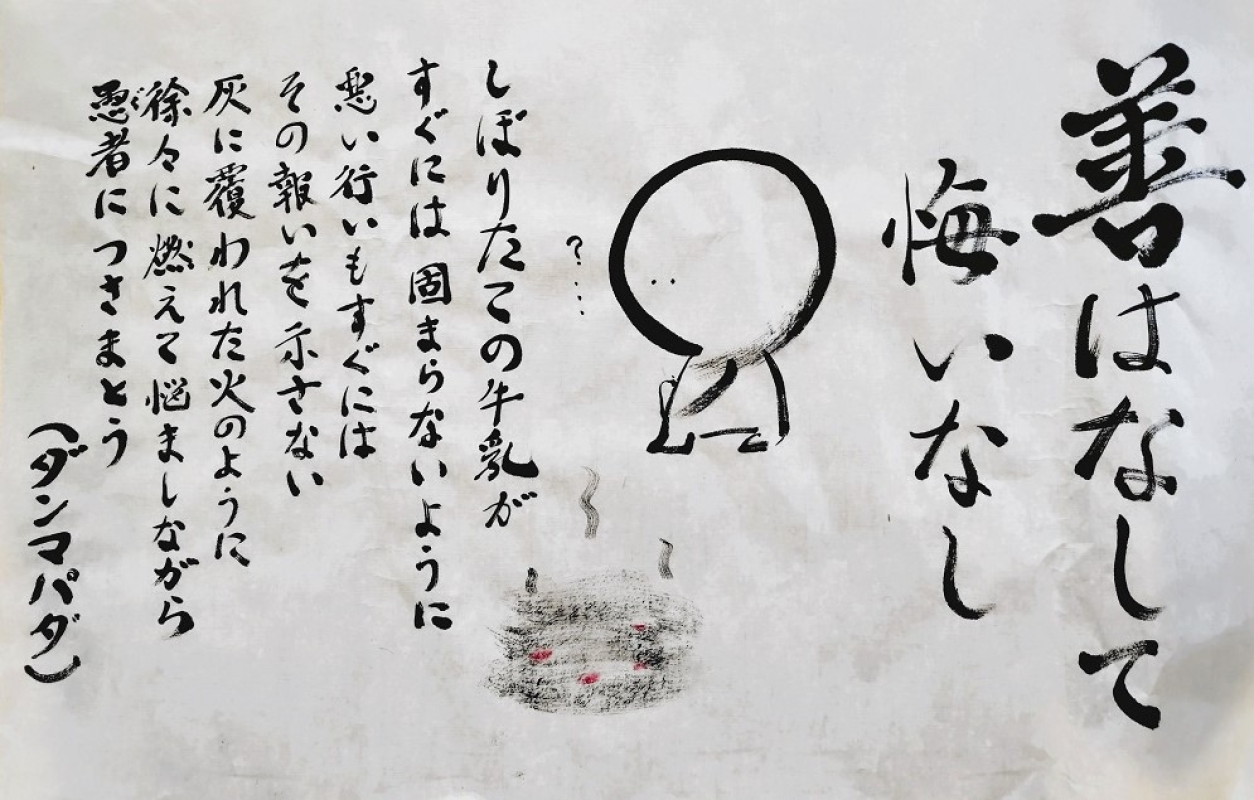 善はなして
悔いなし
?…
しぼりたての牛乳が
すぐには固まらないように
悪い行いもすぐには
その報いを示さない
灰に覆われた火のように
徐々に燃えて悩ましながら
愚者につきまとう
(ダンマパダ)